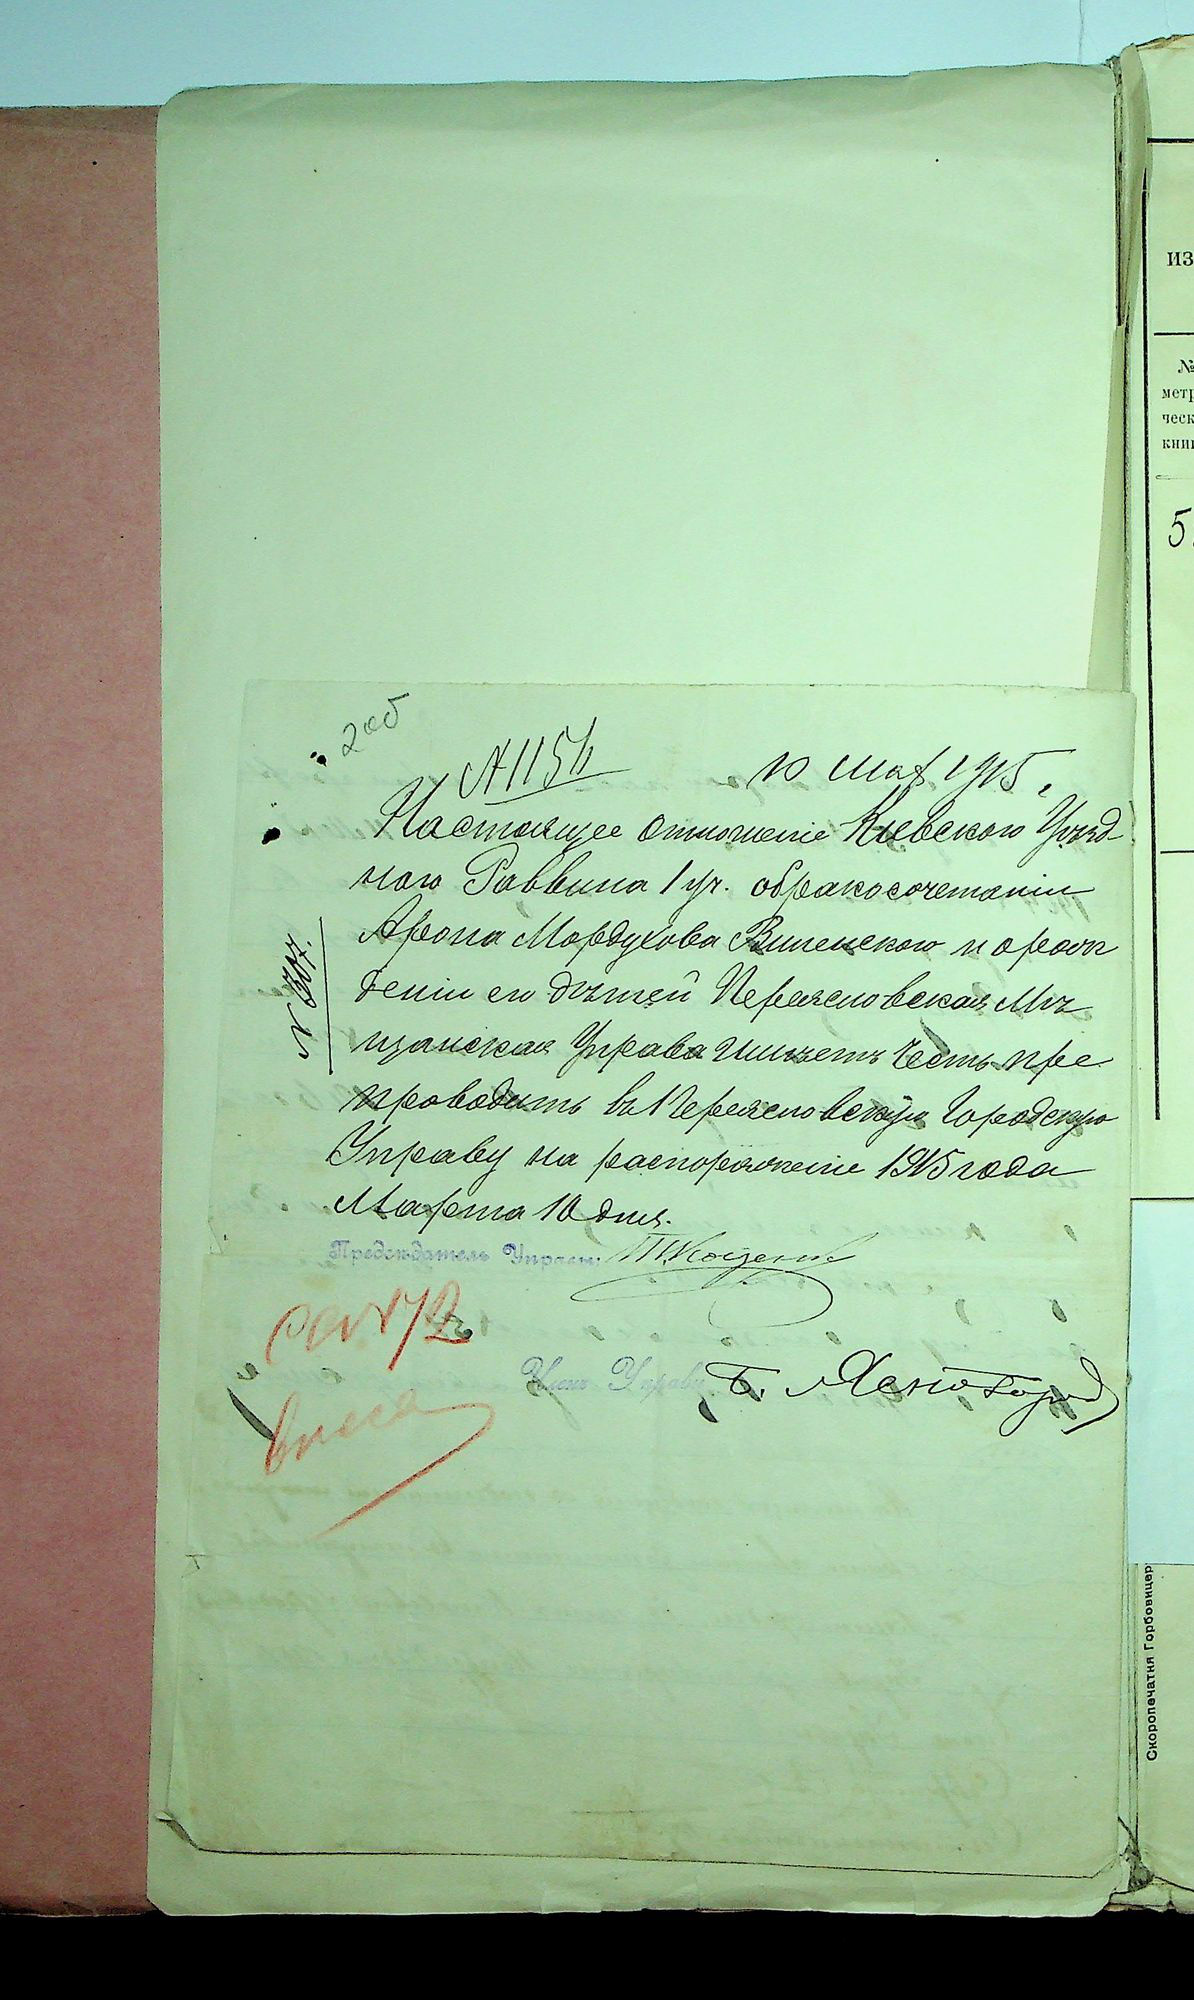 2об
№ 1154
10 мая 1915,
Настоящее отношение Кіевского Уѣзд-
ного Раввина 1 уч. обракосочетаніи
Арона Мордухова Виленского и орож
деніи его дѣтей Переяславская Мѣ
щанская Управа имѣетъ Честь пре
проводить въ Переяславскую Городскую
Управу на распоряженіе 1915 года
Марта 10 дня.
№ 307.
Предсѣдатель Управы:
Членъ Управы Б. Ясногород
из
№
метр
ческ
книг
5
Скоропечатня Горбовицер